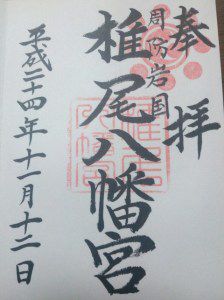 奉拝
周防岩国
椎尾八幡宮
平成二十四年十一月十二日